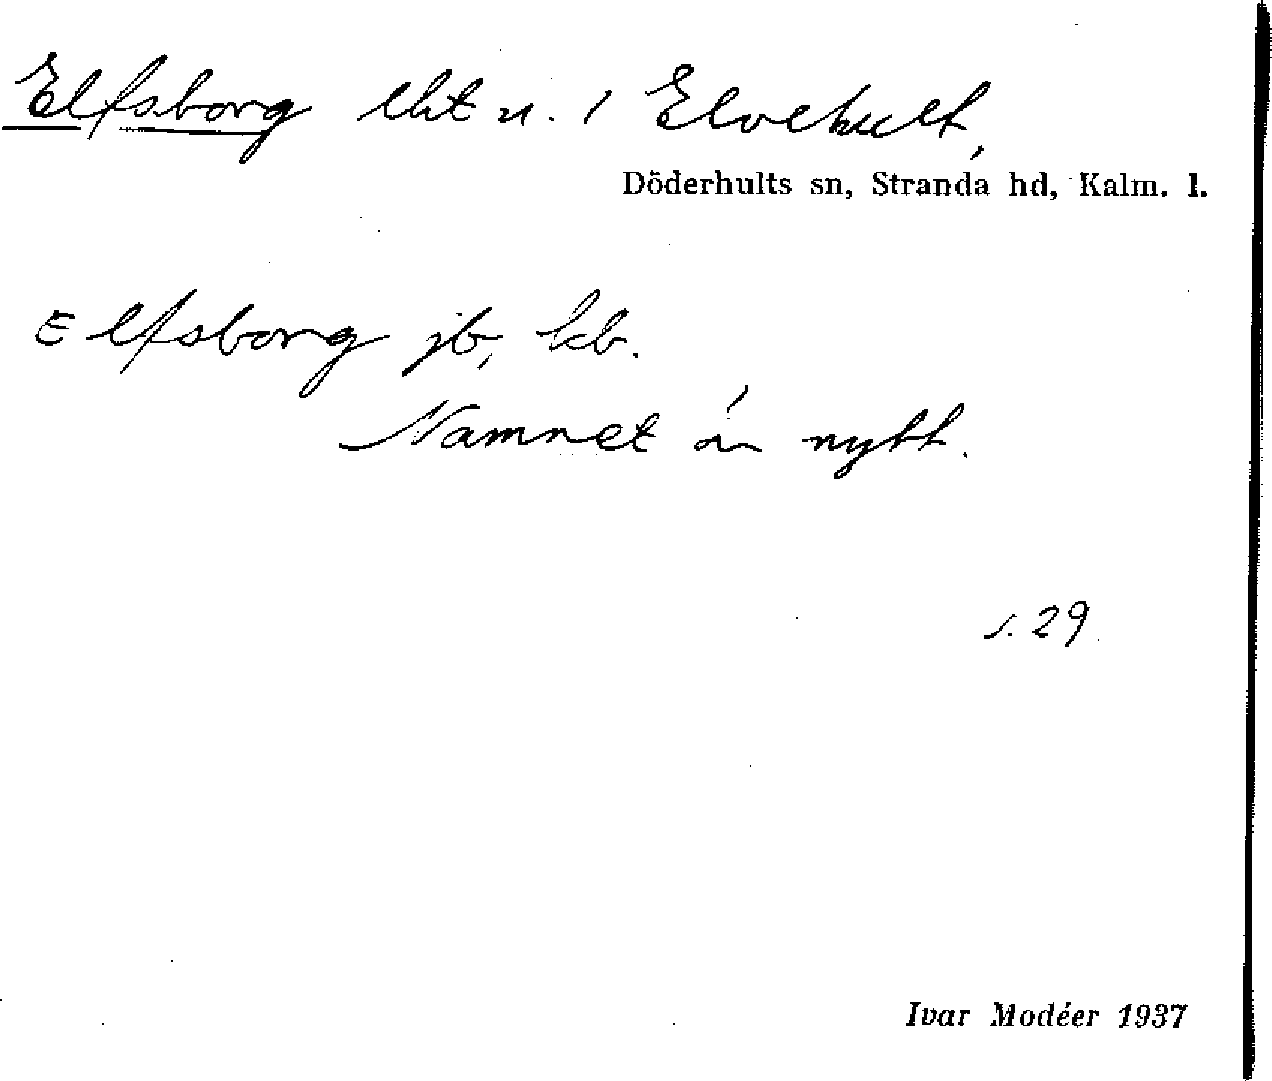 Elfsborg lht u. / Elvehult,
Döderhults sn, Stranda hd, Kalm. l.
Elfsborg jb, kb.
Namnet är nytt.
s. 29.
Ivar Modéer 1937